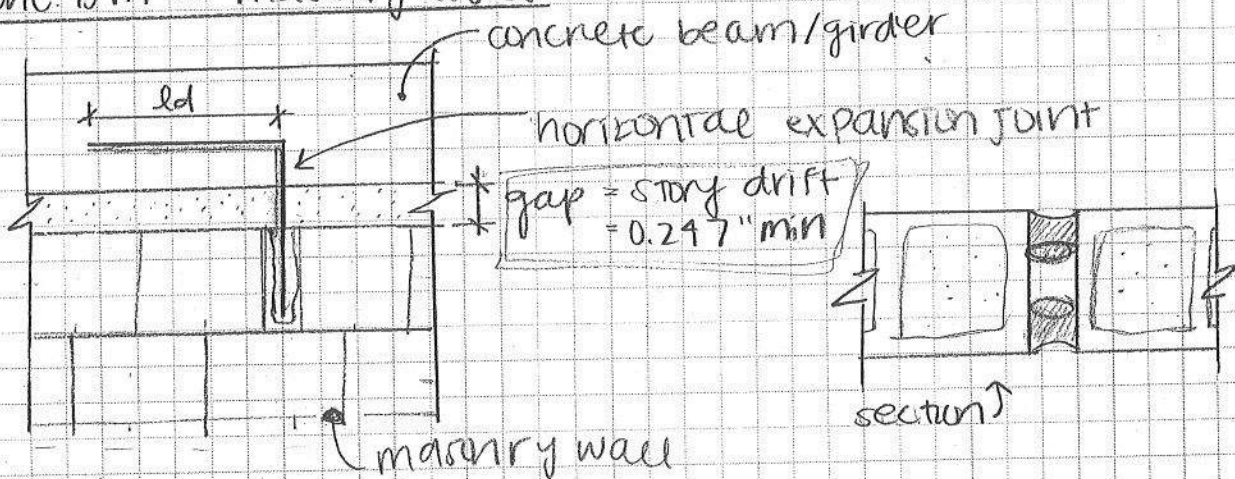 concrete beam/girder
ld
horizontal expansion joint
gap = story drift
= 0.247" min
section
masonry wall